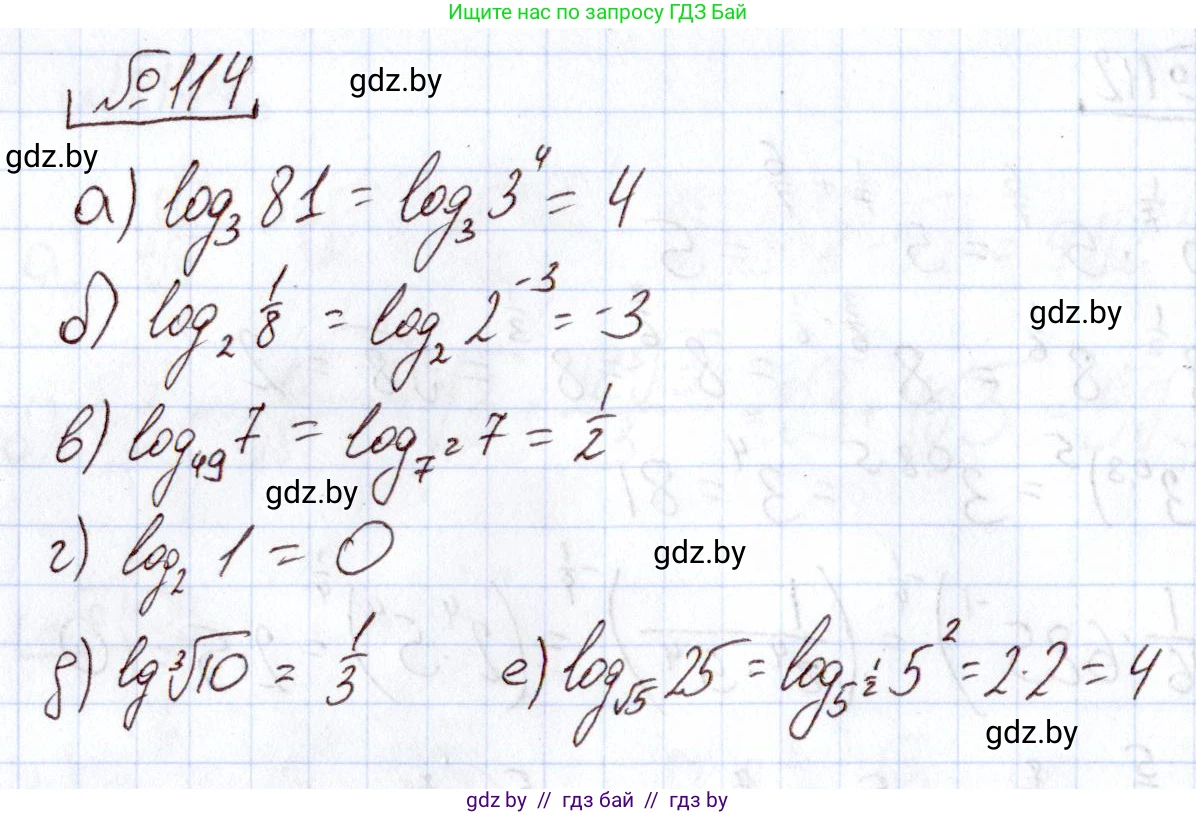 Ищите нас по запросу ГДЗ Бай
№114
gdz.by
gdz.by
а) log₃ 81 = log₃ 3⁴ = 4
б) log₂ 1/8 = log₂ 2⁻³ = -3
gdz.by
в) log₄₉ 7 = log₇² 7 = 1/2
gdz.by
г) log₂ 1 = 0
gdz.by
д) lg ³√10 = 1/3 е) log_√5 25 = log_5^(1/2) 5² = 2·2 = 4
gdz.by
gdz by // гдз бай // гдз by